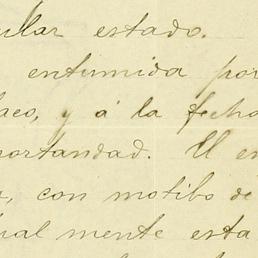 ular estado.
entumida por
aco, y á la fecha
portandad. El en
, con motibo de
ual mente esta